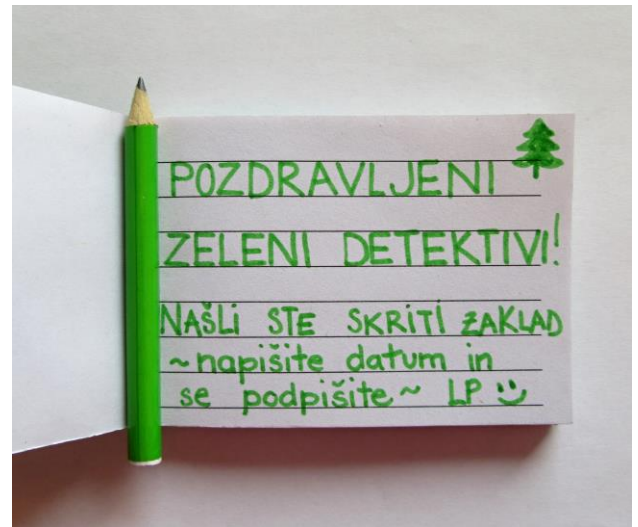 POZDRAVLJENI
ZELENI DETEKTIVI!
NAŠLI STE SKRITI ZAKLAD
~napišite datum in
se podpišite~ LP